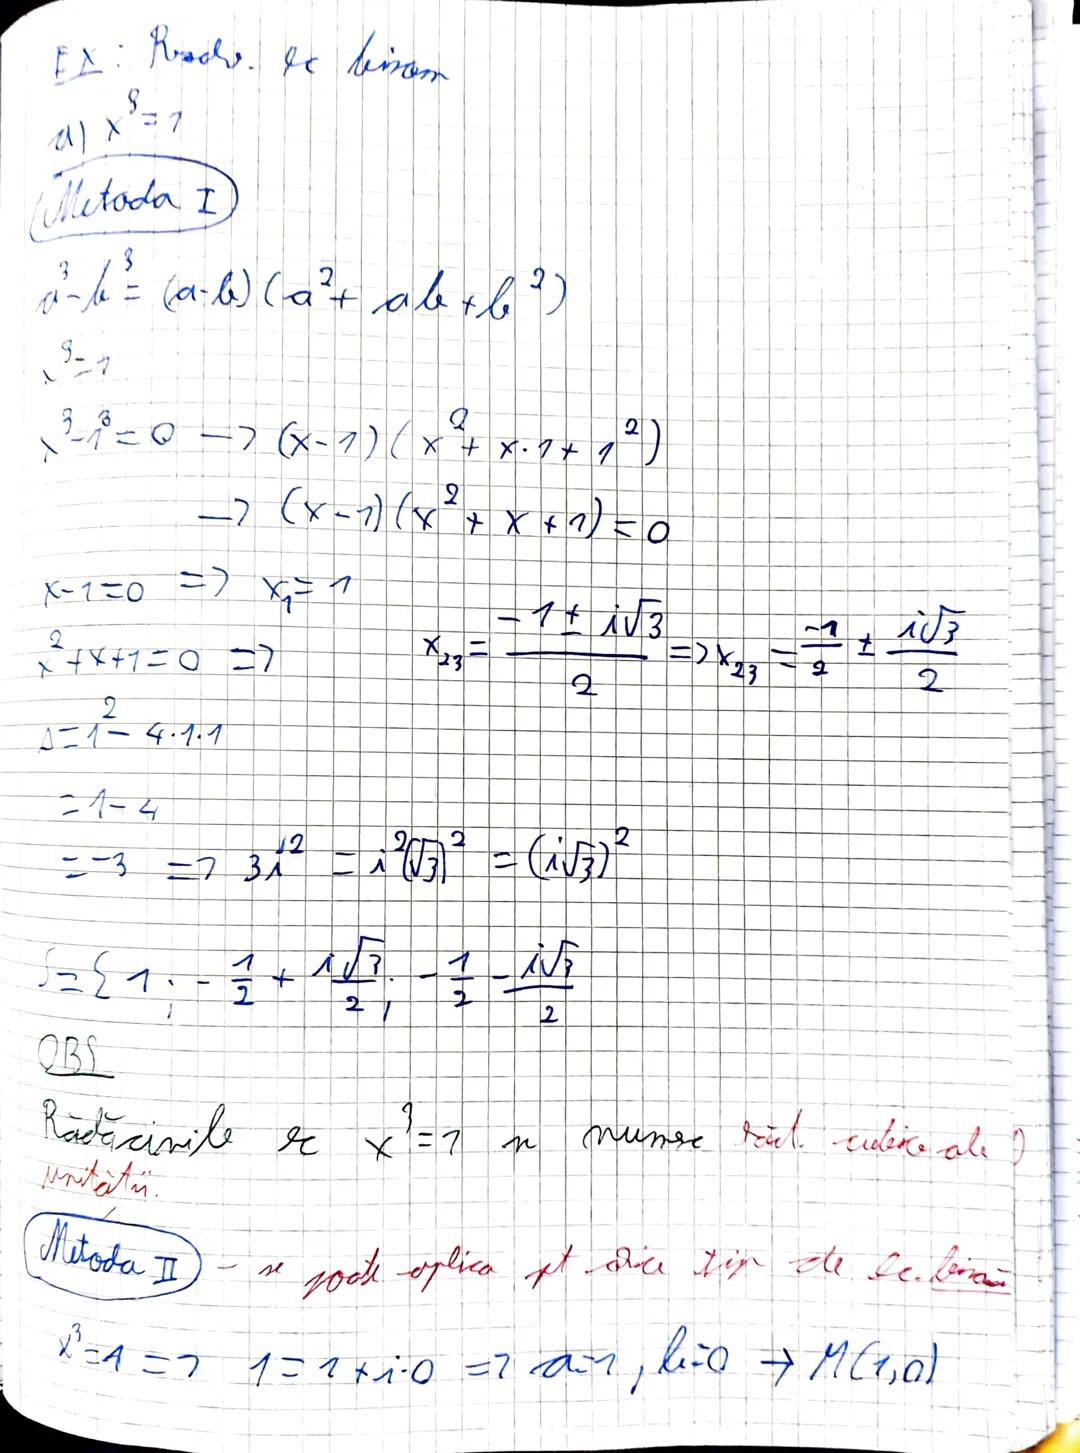 EX: Rezolv. ec binom
a) x³=1
Metoda I
a³-b³=(a-b)(a²+ab+b²)
x³=1
x³-1³=0 → (x-1)(x²+x·1+1²)
→ (x-1)(x²+x+1)=0
x-1=0 => x₁=1
x²+x+1=0 => x₂₃ = (-1±i√3)/2 => x₂₃ = -1/2 ± i√3/2
Δ=1²-4·1·1
=1-4
=-3 => 3i² = i²(√3)² = (i√3)²
S={1; -1/2 + i√3/2; -1/2 - i√3/2
OBS
Rădăcinile ec x³=1 s numesc răd. cubice ale
unității.
Metoda II - se poate aplica pt orice tip de ec. binom
x³=1 => 1=1+i·0 => a=1, b=0 → M(1,0)